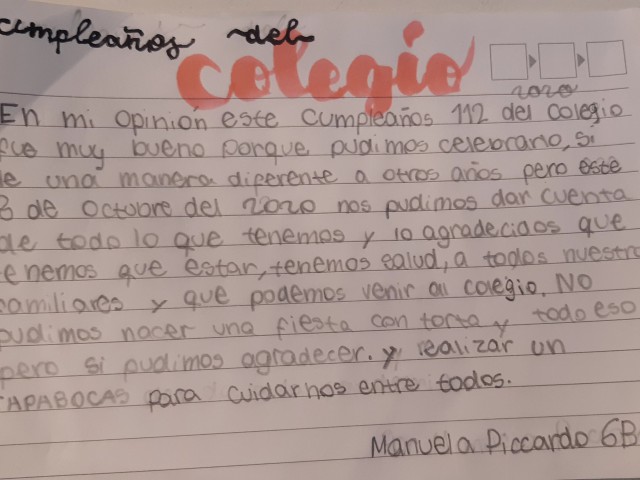 cumpleaños ~del~
colegio
2020
En mi opinión este cumpleaños 112 del colegio
fue muy bueno porque pudimos celebrarlo, si
de una manera diferente a otros años pero este
3 de octubre del 2020 nos pudimos dar cuenta
de todo lo que tenemos y lo agradecidos que
tenemos que estar, tenemos salud, a todos nuestro
familiares y que podemos venir al colegio. No
pudimos hacer una fiesta con torta y todo eso
pero si pudimos agradecer. y realizar un
TAPABOCAS para cuidarnos entre todos.
Manuela Piccardo 6B